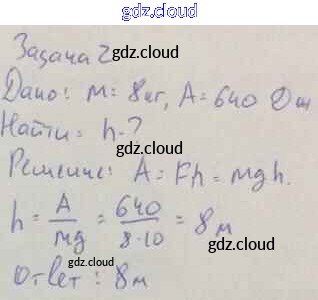 gdz.cloud
Задача 2
gdz.cloud
Дано: m = 8 кг, A = 640 Дж
Найти: h - ?
gdz.cloud
Решение: A = Fh = mgh.
h = A/mg = 640/8·10 = 8 м
gdz.cloud
Ответ: 8 м
gdz.cloud